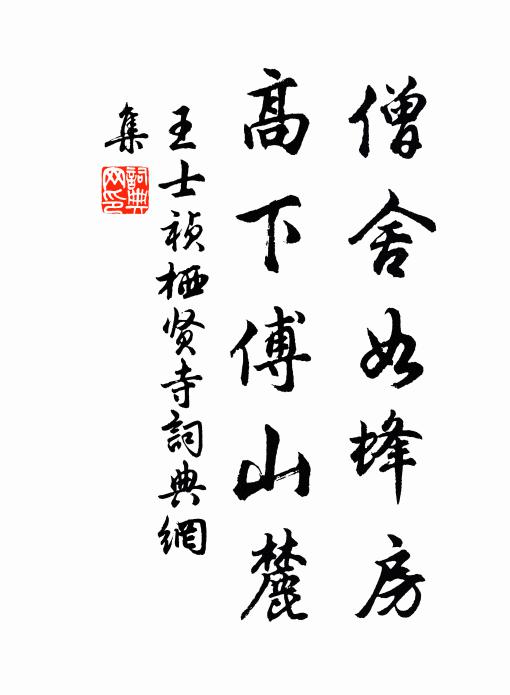 僧舍如蜂房
高下傅山麓
王士祯栖贤寺詞典網
集
詞典網印